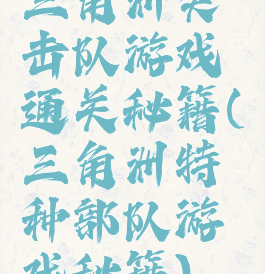 三角洲突
击队游戏
通关秘籍(
三角洲特
种部队游
戏秘籍)